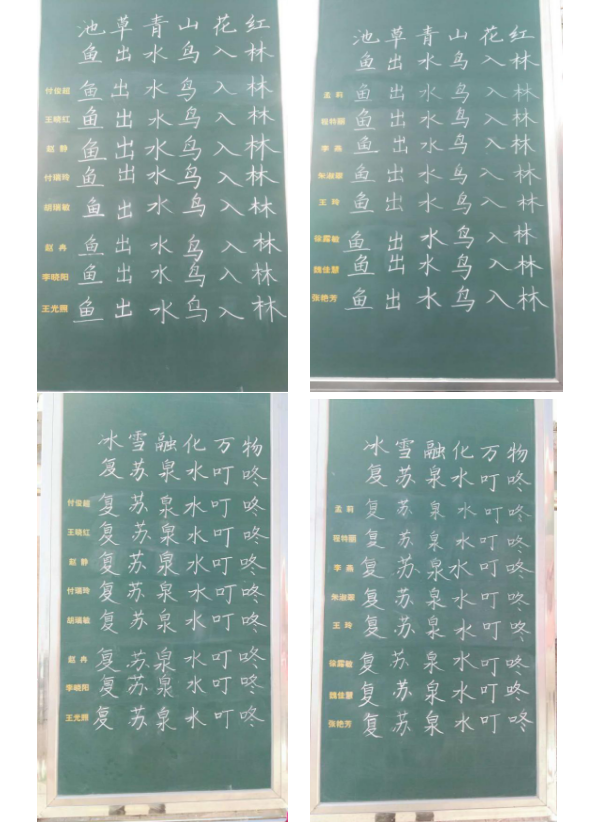 池草青山花红
鱼出水鸟入林
付俊超 鱼出水鸟入林
王晓红 鱼出水鸟入林
赵静 鱼出水鸟入林
付瑞玲 鱼出水鸟入林
胡瑞敏 鱼出水鸟入林
赵冉 鱼出水鸟入林
李晓阳 鱼出水鸟入林
王光照 鱼出水鸟入林
池草青山花红
鱼出水鸟入林
孟莉 鱼出水鸟入林
程特丽 鱼出水鸟入林
李燕 鱼出水鸟入林
朱淑翠 鱼出水鸟入林
王玲 鱼出水鸟入林
徐霞敏 鱼出水鸟入林
魏佳慧 鱼出水鸟入林
张艳芳 鱼出水鸟入林
冰雪融化万物
复苏泉水叮咚
付俊超 复苏泉水叮咚
王晓红 复苏泉水叮咚
赵静 复苏泉水叮咚
付瑞玲 复苏泉水叮咚
胡瑞敏 复苏泉水叮咚
赵冉 复苏泉水叮咚
李晓阳 复苏泉水叮咚
王光照 复苏泉水叮咚
冰雪融化万物
复苏泉水叮咚
孟莉 复苏泉水叮咚
程特丽 复苏泉水叮咚
李燕 复苏泉水叮咚
朱淑翠 复苏泉水叮咚
王玲 复苏泉水叮咚
徐霞敏 复苏泉水叮咚
魏佳慧 复苏泉水叮咚
张艳芳 复苏泉水叮咚